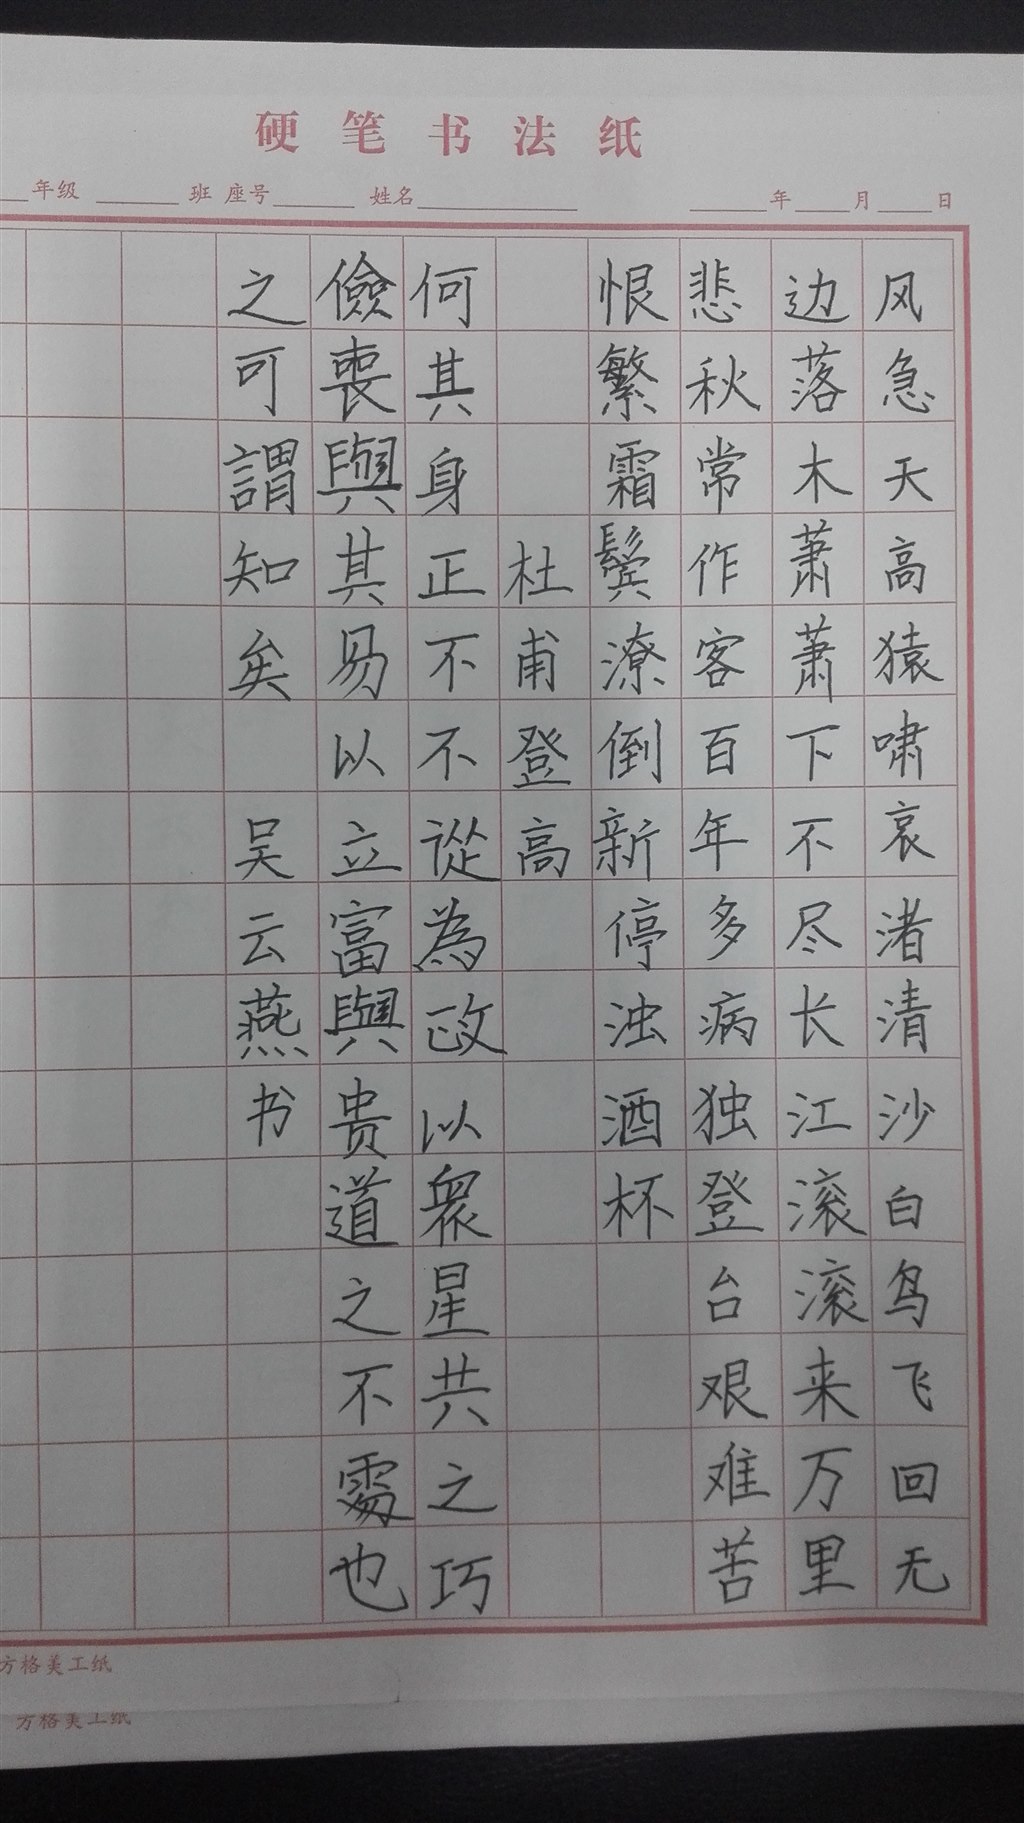 硬笔书法纸
年级 班 座号 姓名 年 月 日
风急天高猿啸哀渚清沙白鸟飞回无
边落木萧萧下不尽长江滚滚来万里
悲秋常作客百年多病独登台艰难苦
恨繁霜鬓潦倒新停浊酒杯
杜甫登高
何其身正不不從為政以衆星共之巧
儉喪與其易以立富與贵道之不處也
之可謂知矣 吴云燕书
方格美工纸
方格美工纸